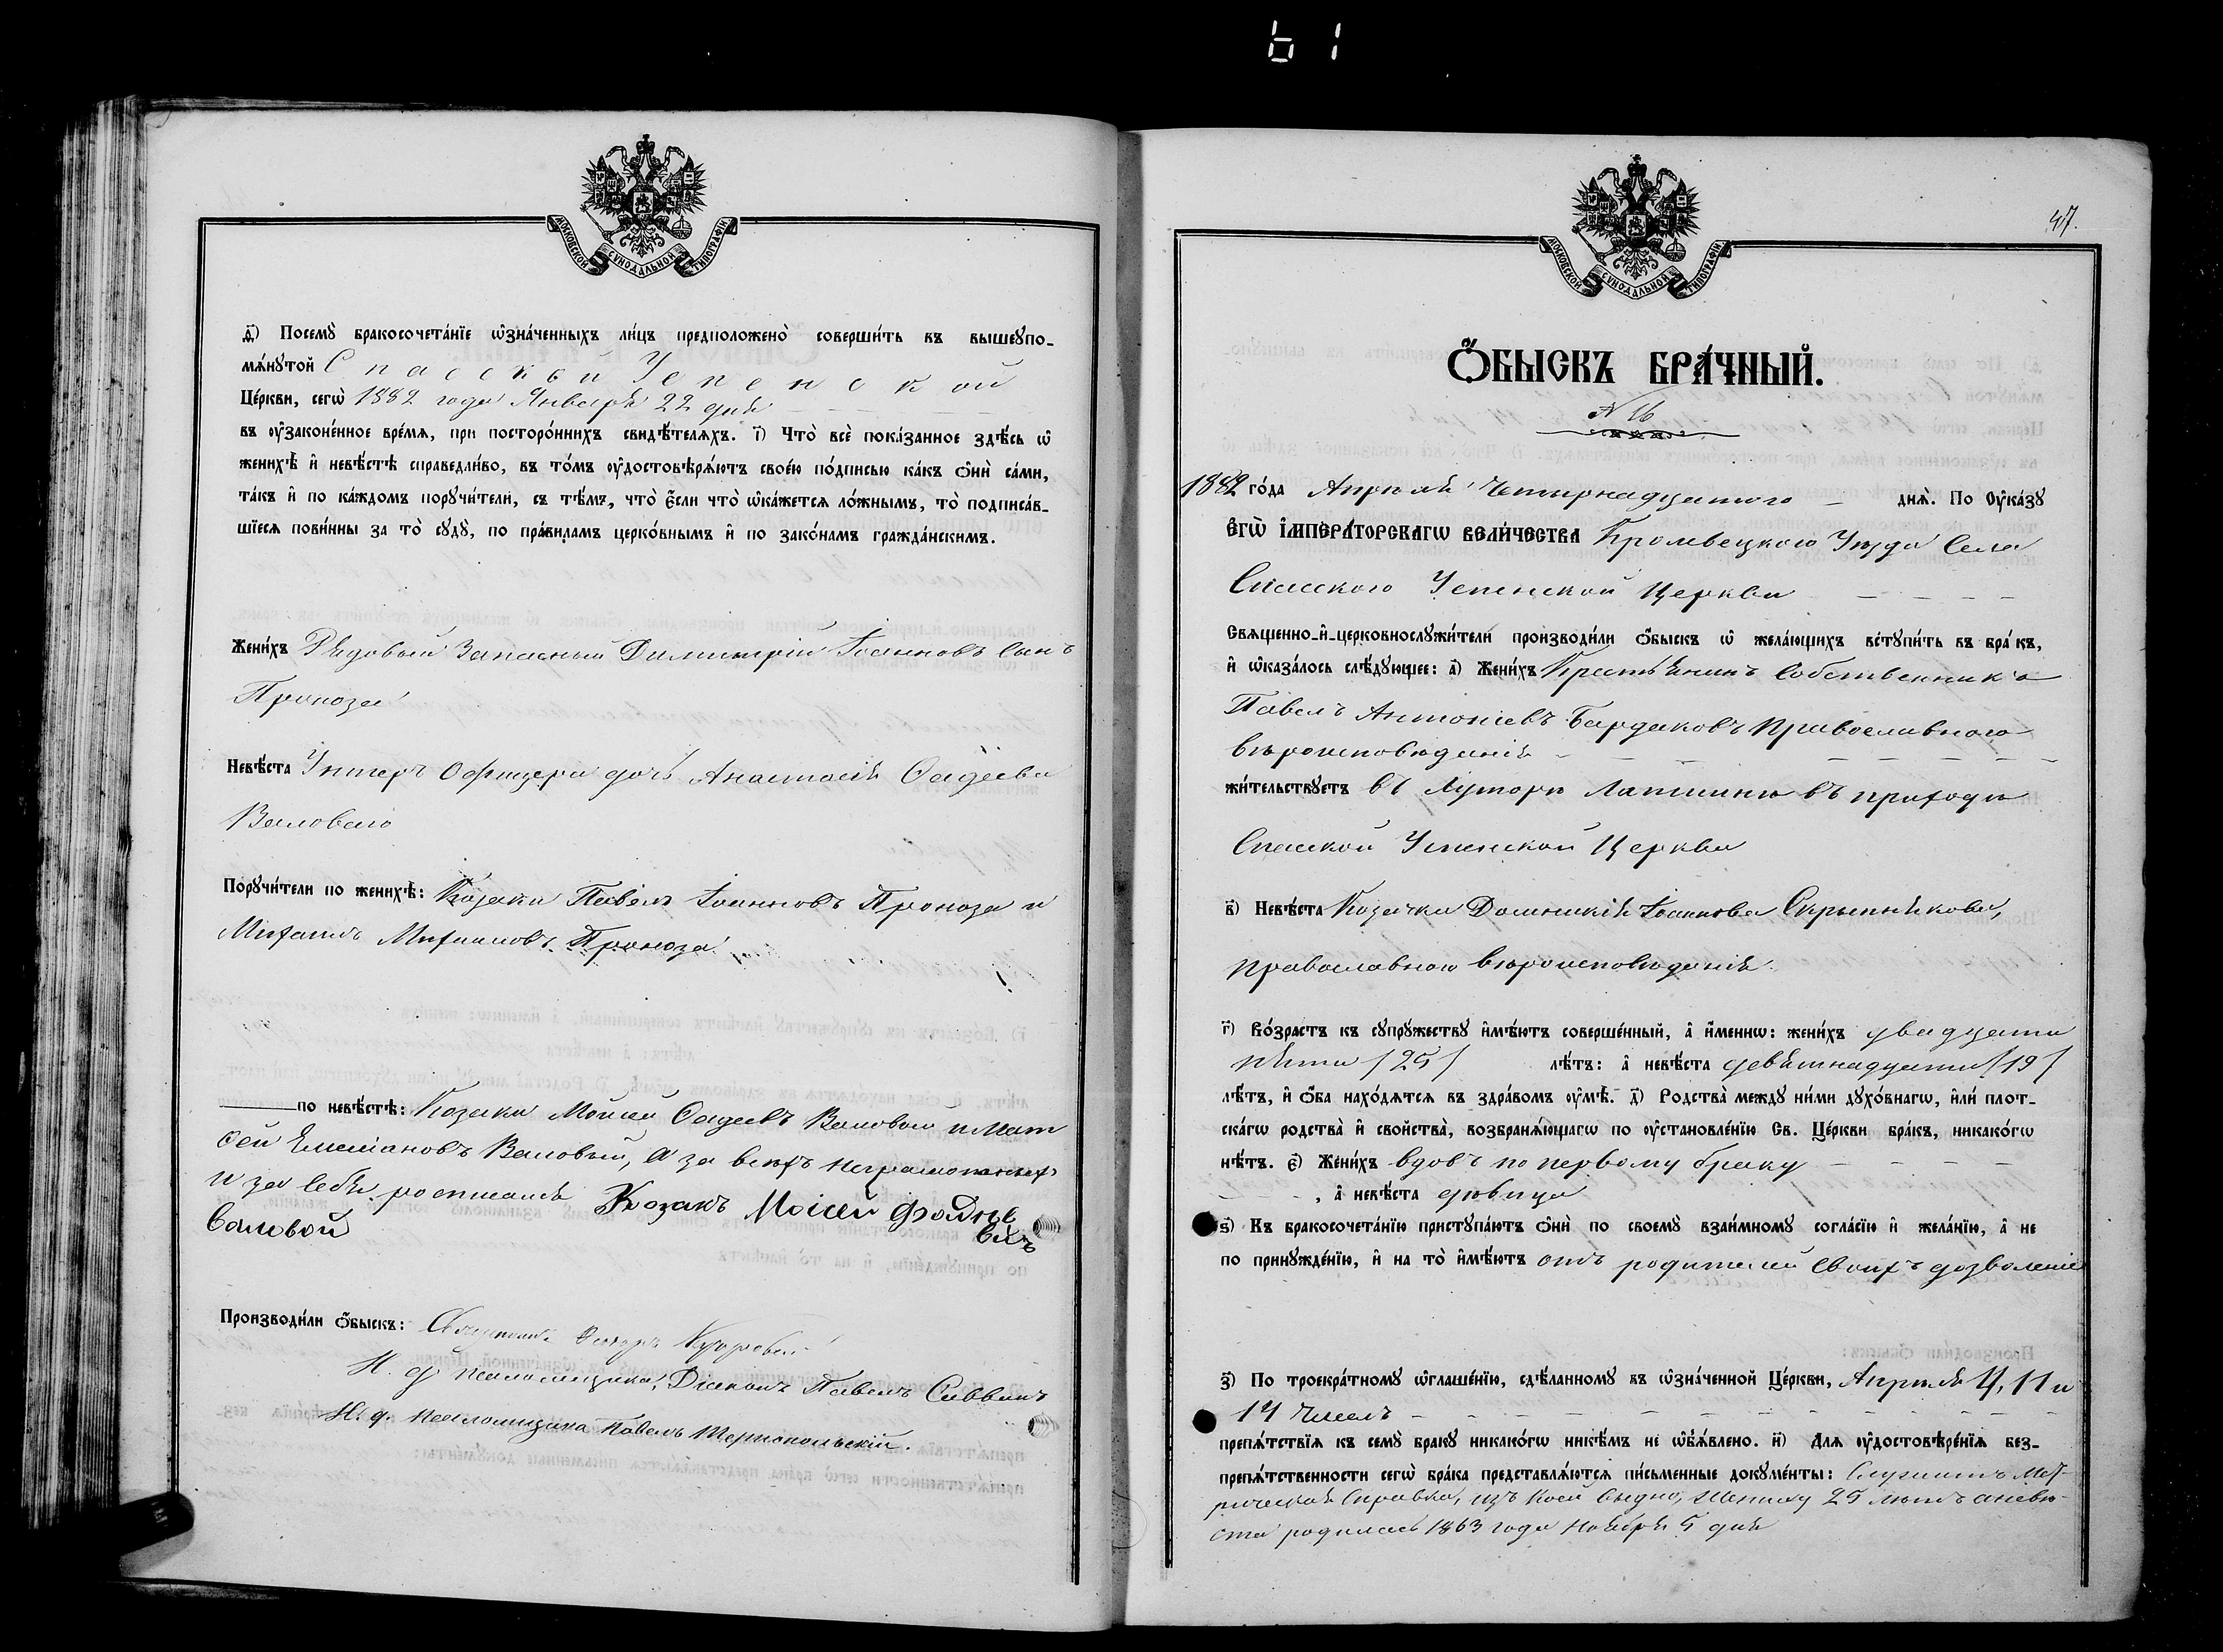 61
МОСКОВСКОЙ СѴНОДАЛЬНОЙ ТИПОГРАФІИ
д҃) Посемꙋ̀ бракосочета́нїе ѡ҆зна́ченныхъ ли́цъ предположено̀ соверши́ть въ вышеꙋпо-
мѧ́нꙋтой Спасской Успенской
Це́ркви, сегѡ̀ 1882 года Января 22 дня
въ ᲂу҆зако́ненное вре́мѧ, при посторо́ннихъ свидѣ́телѧхъ. і҃) Что̀ всѐ пока́занное здѣ́сь ѡ҆
женихѣ̀ и҆ невѣ́стѣ справедли́во, въ то́мъ ᲂу҆достовѣрѧ́ютъ свое́ю по́дписью ка́къ ѻ҆нѝ са́ми,
та́къ и҆ по ка́ждомъ порꙋчи́тели, съ тѣ́мъ, что̀ є҆́сли что̀ ѡ҆ка́жется ло́жнымъ, то̀ подписа́в-
шїесѧ пови́нны за то̀ сꙋдꙋ̀, по пра́виламъ церко́внымъ и҆ по зако́намъ гражда́нскимъ.
Жени́хъ Рядовый Запасный Димитрій Іоанновъ Сынъ
Проноза
Невѣ́ста Унтеръ Офицера дочь Анастасія Фадѣева
Валоваго
Порꙋчи́тели по женихѣ̀: Козаки Павелъ Іоанновъ Проноза и
Михаилъ Михаиловъ Проноза
по невѣ́стѣ: Козаки Моисей Фадеевъ Валовый и Мат
фей Емеліановъ Валовый, А за всехъ неграмотныхъ
и за себя росписался Козакъ Моісей Фадѣе
вичъ
Валовой
Производи́ли ѻ҆́быскъ: Священникъ
И. д. псаломщика, Діаконъ Павелъ Саввичъ
И. д. псаломщика Павелъ Тернопольскій.
47.
МОСКОВСКОЙ СѴНОДАЛЬНОЙ ТИПОГРАФІИ
Ѻ҆́БЫСКЪ БРА́ЧНЫЙ.
№ 16
1882 го́да Апрѣля Четырнадцатого днѧ̀. По Оу҆ка́зꙋ
Є҆ГѠ̀ І҆МПЕРА́ТОРСКАГѠ ВЕЛИ́ЧЕСТВА Кролевецкого Уѣзда Села
Спасского Успенской Церкви
Свѧще́нно-и҆-церковнослꙋжи́тели производи́ли ѻ҆́быскъ ѡ҆ жела́ющихъ встꙋпи́ть въ бра́къ,
и҆ ѡ҆каза́лось слѣ́дꙋющее: а҃) Жени́хъ Крестьянинъ Собственникъ
Павелъ Антоніевъ Бардаковъ Православного
вѣроисповѣданія
жи́тельствꙋетъ въ Хуторѣ Лапшинѣ въ приходѣ
Спасской Успенской Церкви
в҃) Невѣ́ста Козачка Домникія Іоаннова Скрыпникова,
Православного вѣроисповѣданія.
г҃) Во́зрастъ къ сꙋпрꙋ́жествꙋ и҆мѣ́ютъ соверше́нный, а҆ и҆́меннѡ: жени́хъ двадцати
пяти /25/ лѣ́тъ: а҆ невѣ́ста девятнадцати /19/
лѣ́тъ, и҆ ѻ҆́ба нахо́дѧтсѧ въ здра́вомъ ᲂу҆мѣ̀. д҃) Родства̀ междꙋ ни́ми дꙋхо́внагѡ, и҆лѝ плот-
ска́гѡ родства̀ и҆ сво́йства̀, возбранѧ́ющагѡ по ᲂу҆становле́нїю Св. Це́ркви бра́къ, никако́гѡ
нѣ́тъ. є҃) Жени́хъ вдовъ по первому браку
, а҆ невѣ́ста дѣвица
ѕ҃) Къ бракосочета́нїю пристꙋпа́ютъ ѻ҆нѝ по своемꙋ̀ взаи́мномꙋ согла́сїю и҆ жела́нїю, а҆ не
по принꙋжде́нїю, и҆ на то̀ и҆мѣ́ютъ отъ родителей своихъ дозволеніе
з҃) По троекра́тномꙋ ѡ҆глаше́нїю, сдѣ́ланномꙋ въ ѡ҆зна́ченной Це́ркви, Апрѣля 4, 11 и
14 чиселъ
препѧ́тствїѧ къ семꙋ̀ бракꙋ никако́гѡ никѣ́мъ не ѡ҆б̾ѧ́влено. и҃) Длѧ ᲂу҆достовѣре́нїѧ без-
препѧ́тственности сегѡ̀ бра́ка представлѧ́ютсѧ пи́сьменные докꙋме́нты: Служитъ мет-
рическая Справка, изъ коей видно, Жениху 25 лѣтъ а невѣ
ста родилась 1863 года Ноября 5 дня